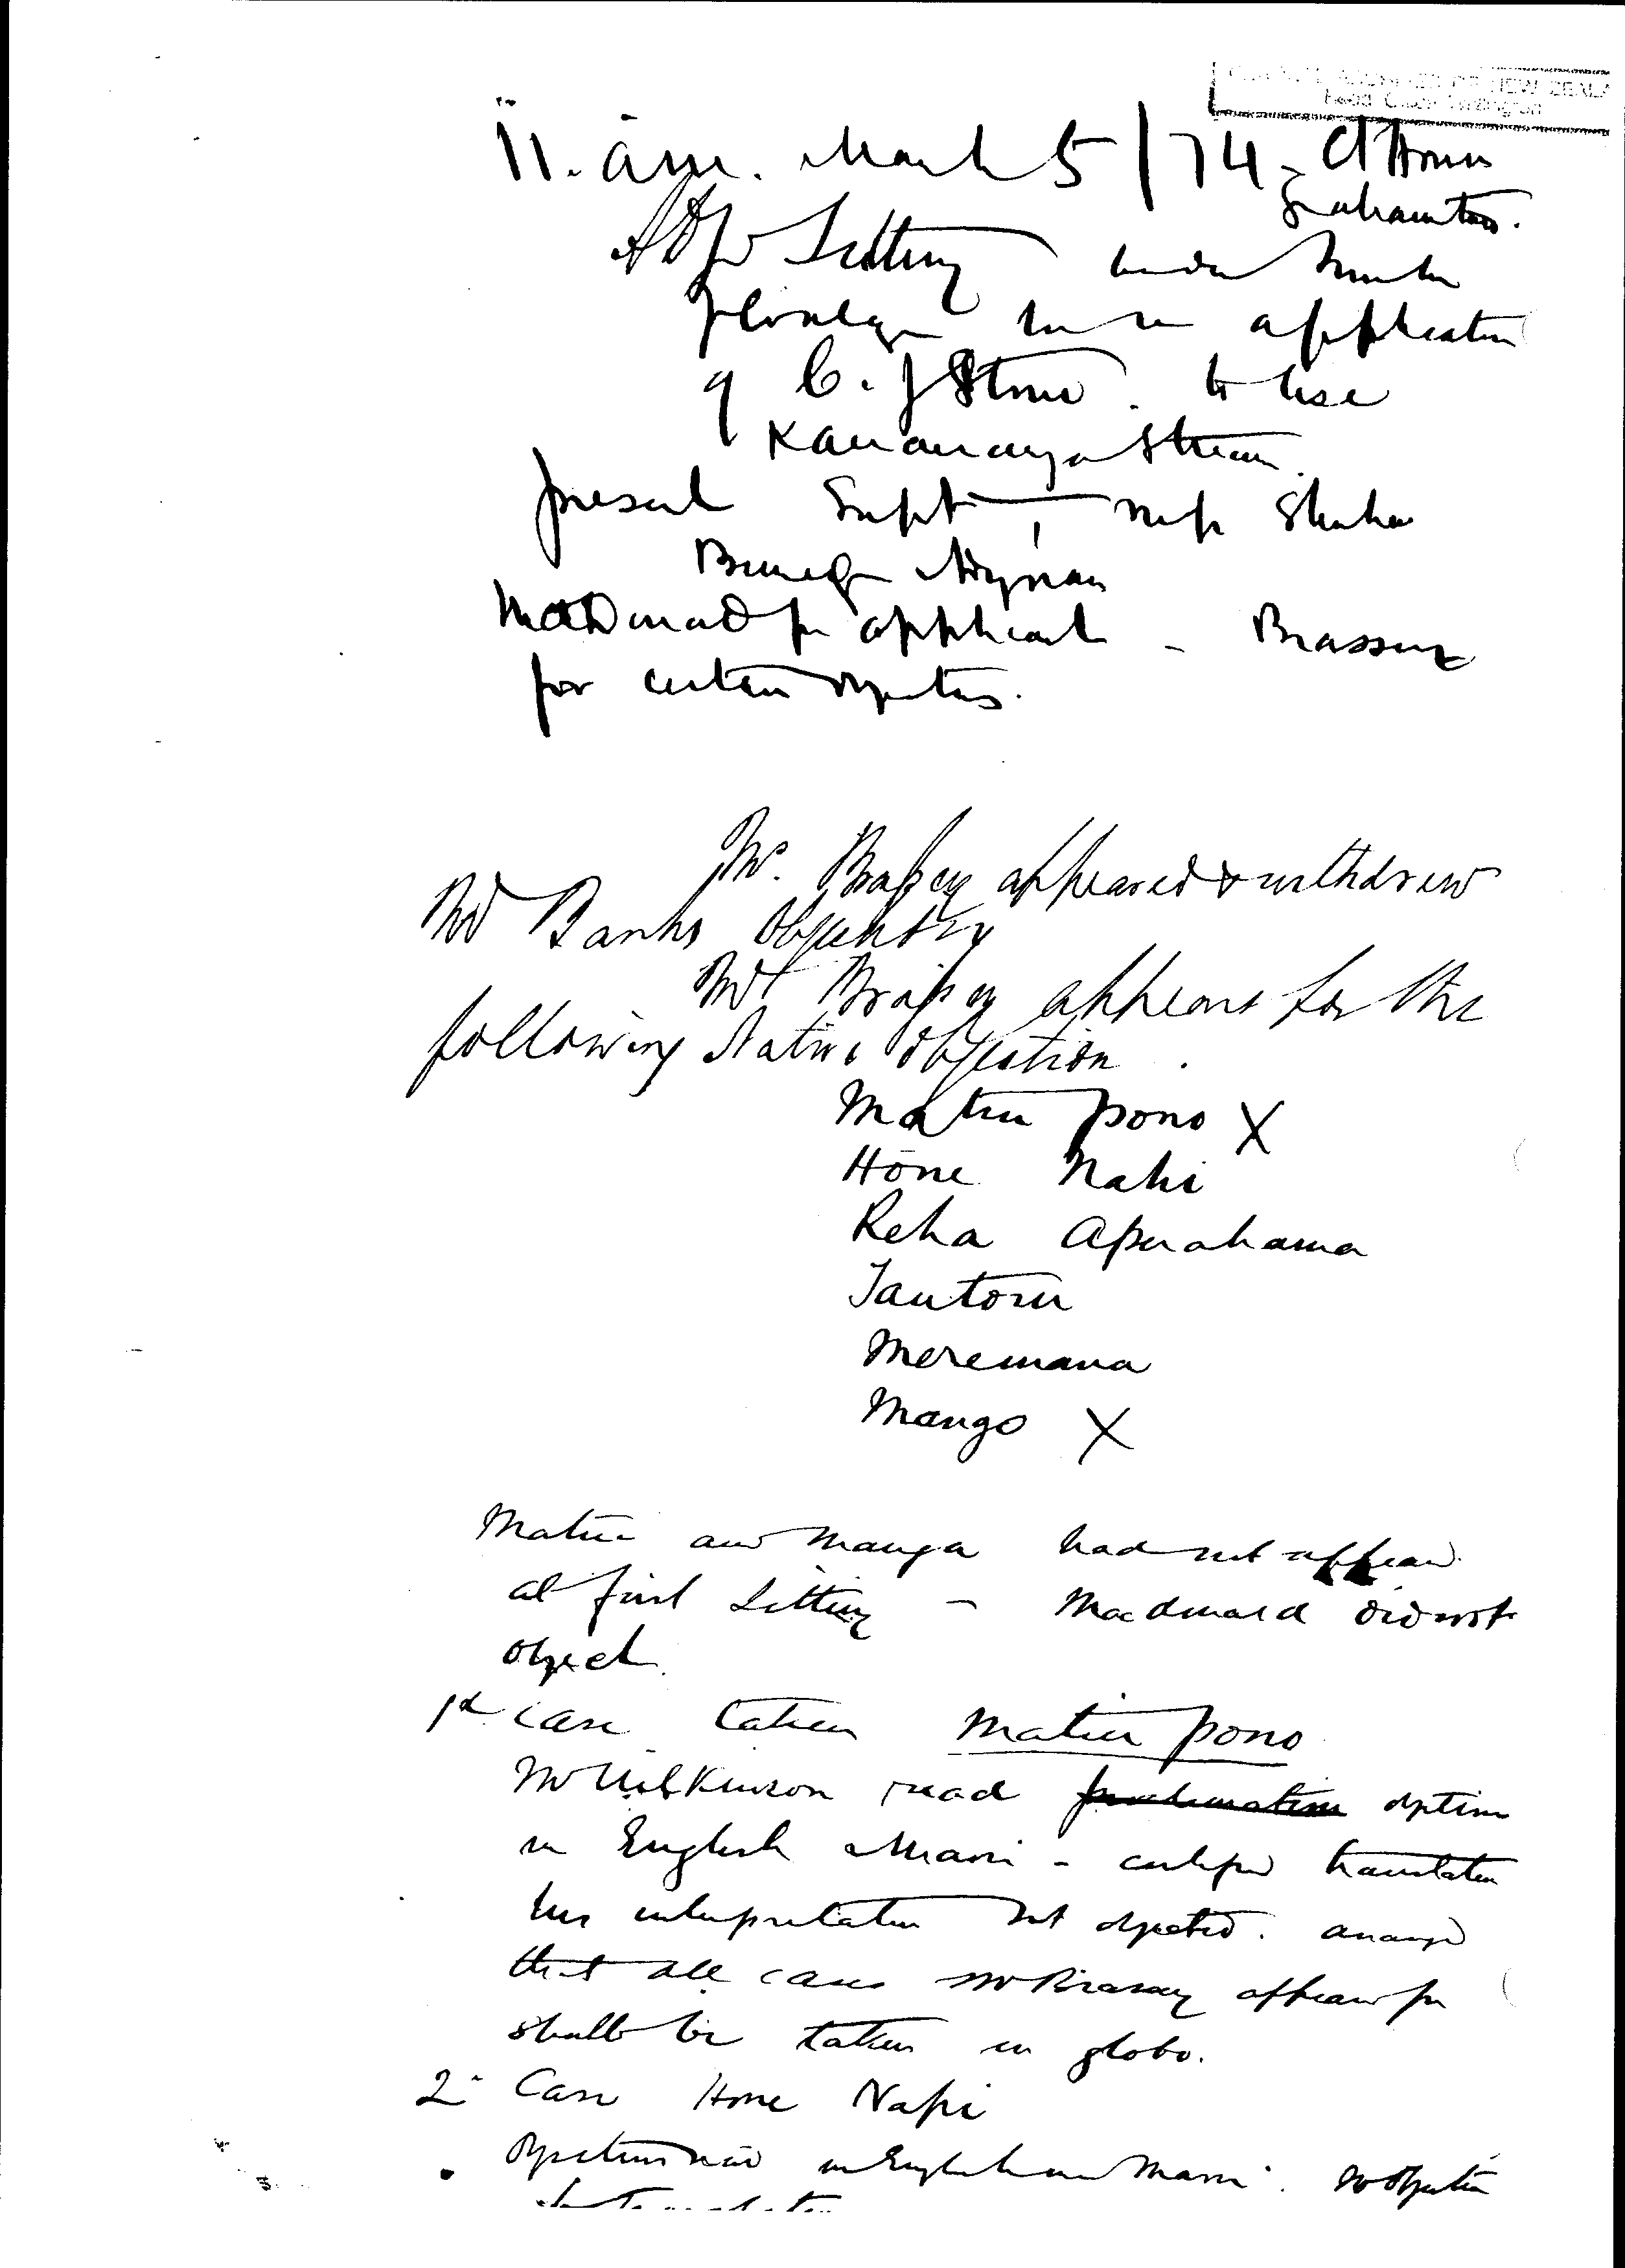 11. am. March 5/74 - Ct House
Grahamtown.
Adj Sitting under
application
of C. J Stone. to use
Kauaeranga Stream.
present Supt
MacDonald for applicant - Brassey
for certain objectors.
Mr. Brassey appeared & withdrew
Mr Banks objection
Mr Brassey appears for the
following Native Objection.
Matiu Pono X
Hone Nahi
Reha Aperahama
Tautoru
Meremana
Mango X
Matiu and Manga had not appeared
at first sitting - Macdonald did not
object.
1st case taken Matiu Pono
Mr Wilkinson read objection
in English & Maori - certified translation
his interpretation not objected. arranged
that all cases Mr Brassey appears for
shall be taken in globo.
2 Case Hone Napi
Objection read in English and Maori. No objection